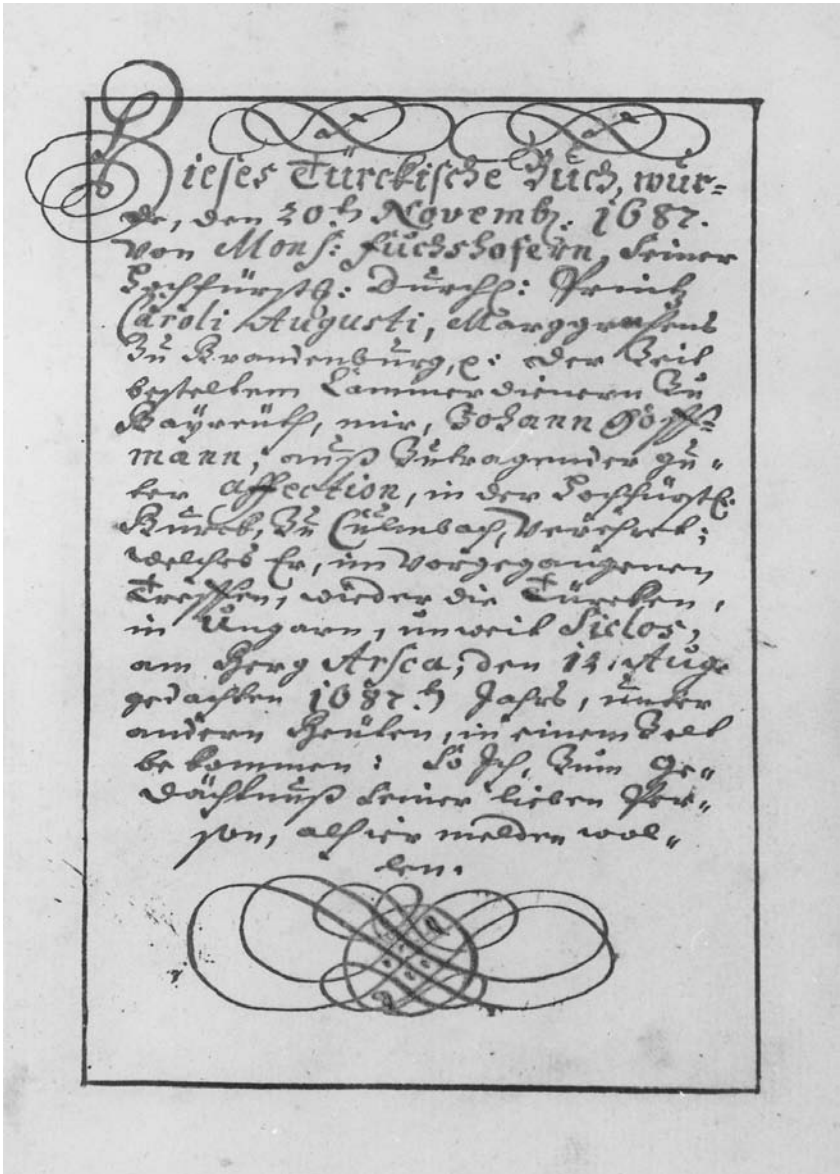 Dieses Türckische Buch, wur-
de, den 20.t Novemb: 1687.
von Mons: Fuchshofern, Seiner
Hochfürstl: Durchl: Printz
Caroli Augusti, Marggrafens
Zu Brandenburg, p: der Zeit
bestelltem Cammerdienern Zu
Bayreuth, mir, Johann Hoff-
mann, auß Zutragender gu-
ter affection, in der Hochfürstl:
Burck, Zu Culmbach, verehret;
welches Er, im vorgegangenen
Treffen, wieder die Türcken,
in Ungarn, unweit Siclos,
am Berg Arsca, den 12. Aug:
gedachten 1687.t Jahrs, unter
andern Beuten, in einem Zelt
bekommen: So Ich, Zum Ge-
dächtnuß Seiner lieben Per-
son, alhier melden wol-
len.